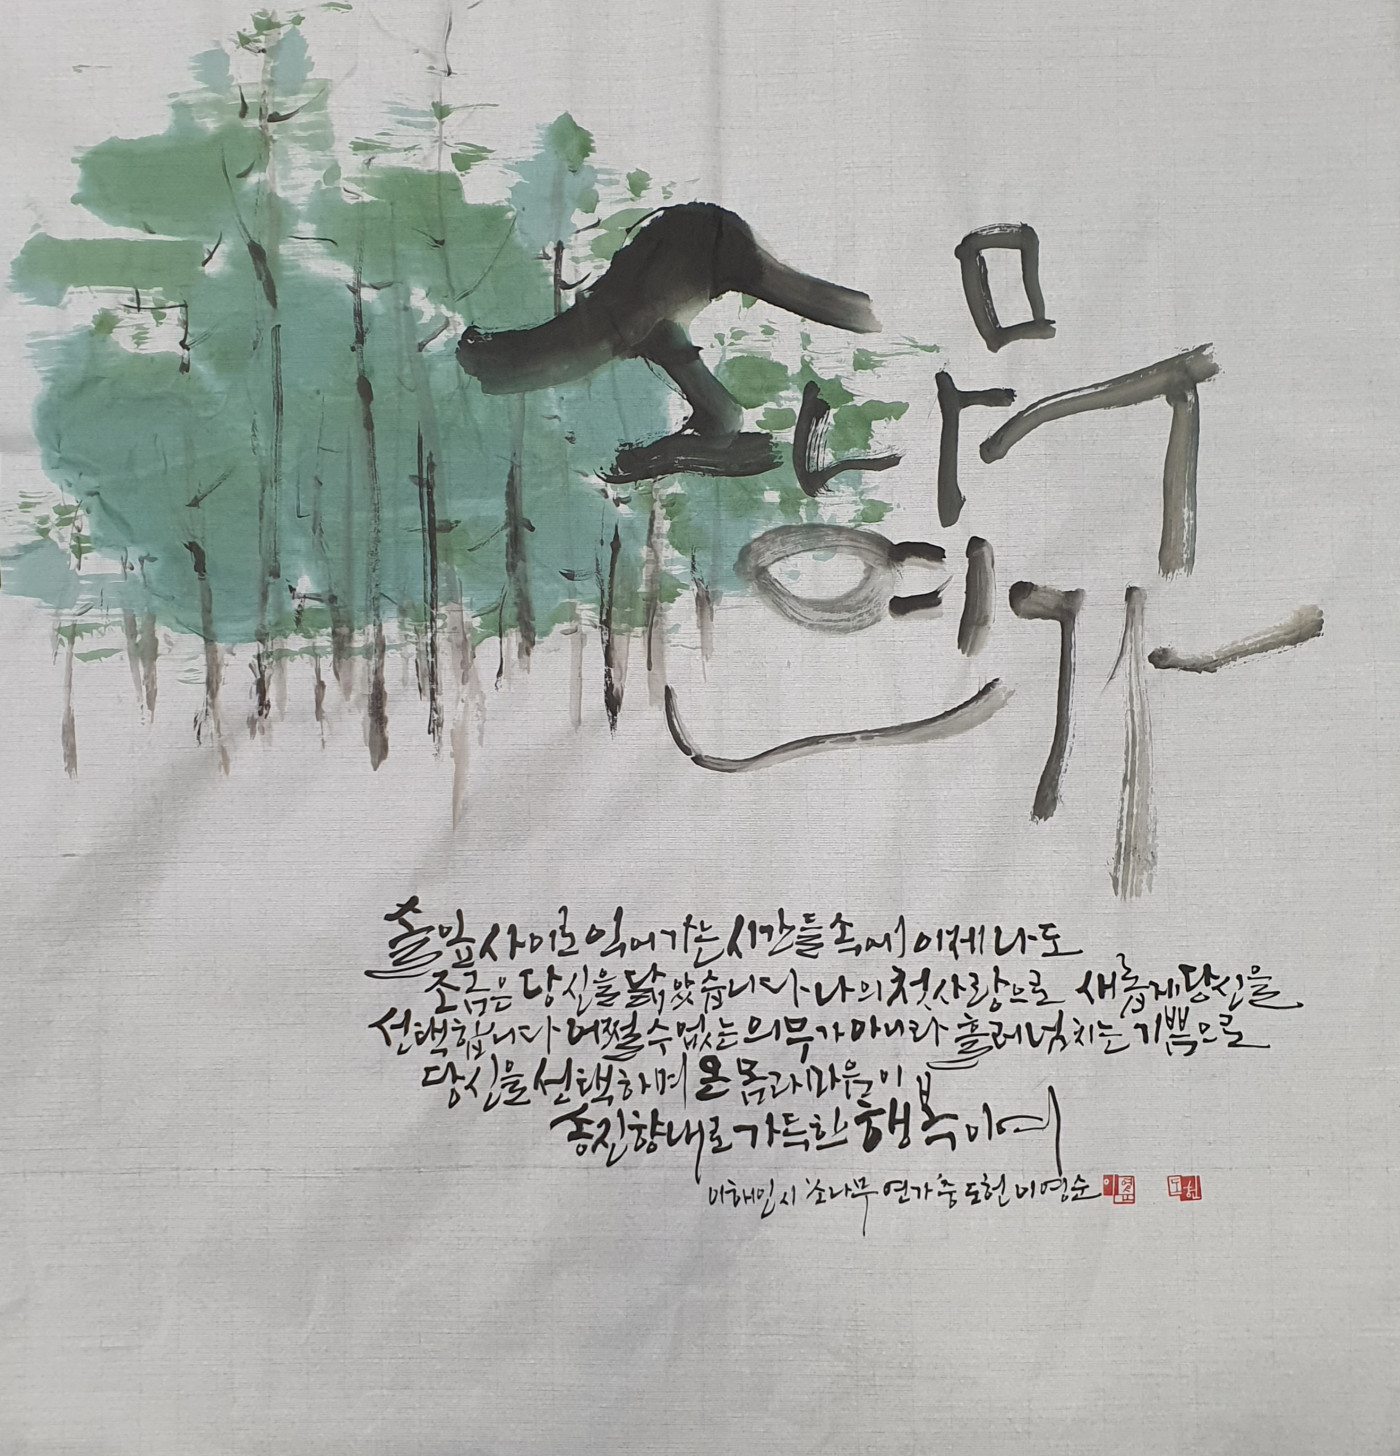 소나무
연가
솔잎 사이로 익어가는 시간들 속에 이제 나도
조금은 당신을 닮았습니다 나의 첫사랑으로 새롭게 당신을
선택합니다 어쩔 수 없는 의무가 아니라 흘러넘치는 기쁨으로
당신을 선택하며 온 몸과 마음이
송진향내로 가득한 행복이여
이해인 시 '소나무 연가' 중 도헌 이영순
도헌